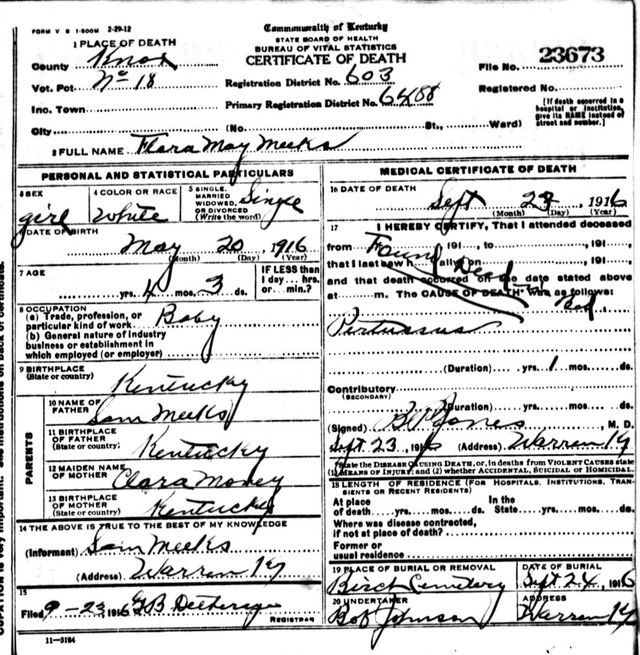 FORM V S 1-500M 2-29-12
Commonwealth of Kentucky
STATE BOARD OF HEALTH
BUREAU OF VITAL STATISTICS
CERTIFICATE OF DEATH
1 PLACE OF DEATH
County Knox
Vot. Pct No 18
Inc. Town
City (No. St., Ward)
Registration District No. 603
Primary Registration District No. 6408
File No. 23673
Registered No.
[If death occurred in a hospital or institution, give its NAME instead of street and number.]
2 FULL NAME Flara May Meeks
PERSONAL AND STATISTICAL PARTICULARS
3 SEX girl
4 COLOR OR RACE White
5 SINGLE, MARRIED WIDOWED, OR DIVORCED (Write the word) Single
6 DATE OF BIRTH
May 20, 1916
(Month) (Day) (Year)
7 AGE
yrs. 4 mos. 3 ds.
IF LESS than 1 day... hrs. or... min.?
8 OCCUPATION
(a) Trade, profession, or particular kind of work Baby
(b) General nature of industry business or establishment in which employed (or employer)
9 BIRTHPLACE
(State or country) Kentucky
PARENTS
10 NAME OF FATHER Sam Meeks
11 BIRTHPLACE OF FATHER (State or country) Kentucky
12 MAIDEN NAME OF MOTHER Clara Money
13 BIRTHPLACE OF MOTHER (State or country) Kentucky
14 THE ABOVE IS TRUE TO THE BEST OF MY KNOWLEDGE
(Informant) Sam Meeks
(Address) Warren Ky
15
Filed 9-23 1916 REGISTRAR
11-3184
MEDICAL CERTIFICATE OF DEATH
16 DATE OF DEATH
Sept 23, 1916
(Month) (Day) (Year)
17 I HEREBY CERTIFY, That I attended deceased
from 191, to 191,
that I last saw h alive on 191,
and that death occurred on the date stated above
at m. The CAUSE OF DEATH was as follows:
Found Dead Bed
Pertussus
(Duration) yrs. 1 mos. ds.
Contributory
(SECONDARY)
(Duration) yrs. mos. ds.
(Signed) Jones, M. D.
Sept 23, 1916 (Address) Warren Ky
State the DISEASE CAUSING DEATH, or, in deaths from VIOLENT CAUSES state (1) MEANS OF INJURY; and (2) whether ACCIDENTAL, SUICIDAL or HOMICIDAL.
18 LENGTH OF RESIDENCE (FOR HOSPITALS, INSTITUTIONS, TRANSIENTS OR RECENT RESIDENTS)
At place of death yrs. mos. ds. In the State yrs. mos. ds.
Where was disease contracted, if not at place of death?
Former or usual residence
19 PLACE OF BURIAL OR REMOVAL Birch Cemetery
DATE OF BURIAL Sept 24, 1916
20 UNDERTAKER Bob Johnson
ADDRESS Warren Ky